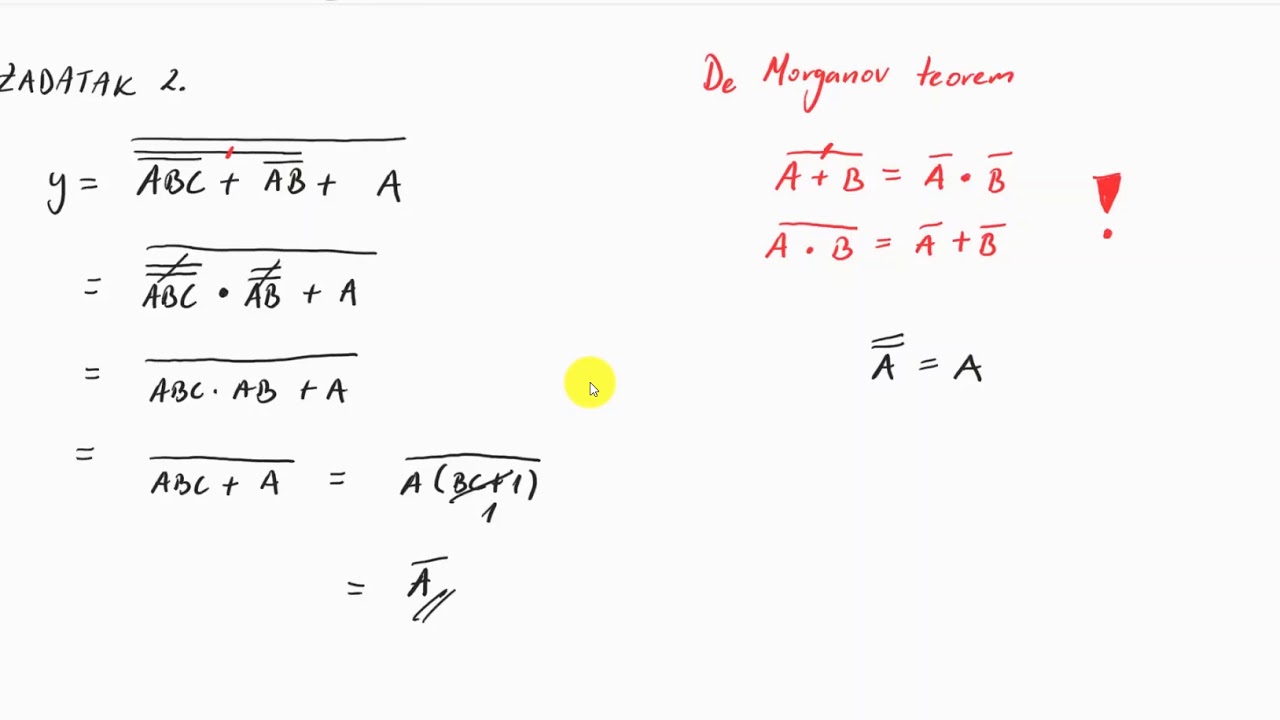 ZADATAK 2.
y = \overline{\overline{\overline{ABC} + \overline{AB}} + A}
= \overline{\overline{\overline{ABC}} \cdot \overline{\overline{AB}} + A}
= \overline{ABC \cdot AB + A}
= \overline{ABC + A} = \overline{A (BC+1)}
1
= \overline{A}
De Morganov teorem
\overline{A + B} = \overline{A} \cdot \overline{B}
\overline{A \cdot B} = \overline{A} + \overline{B}
!
\overline{\overline{A}} = A